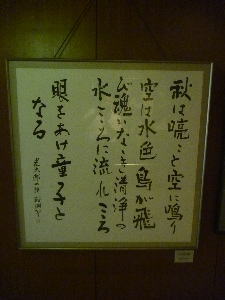 秋は喨々と空に鳴り
空は水色鳥が飛
び魂いななき清浄の
水こころに流れこころ
眼をあけ童子と
なる
光太郎の詩